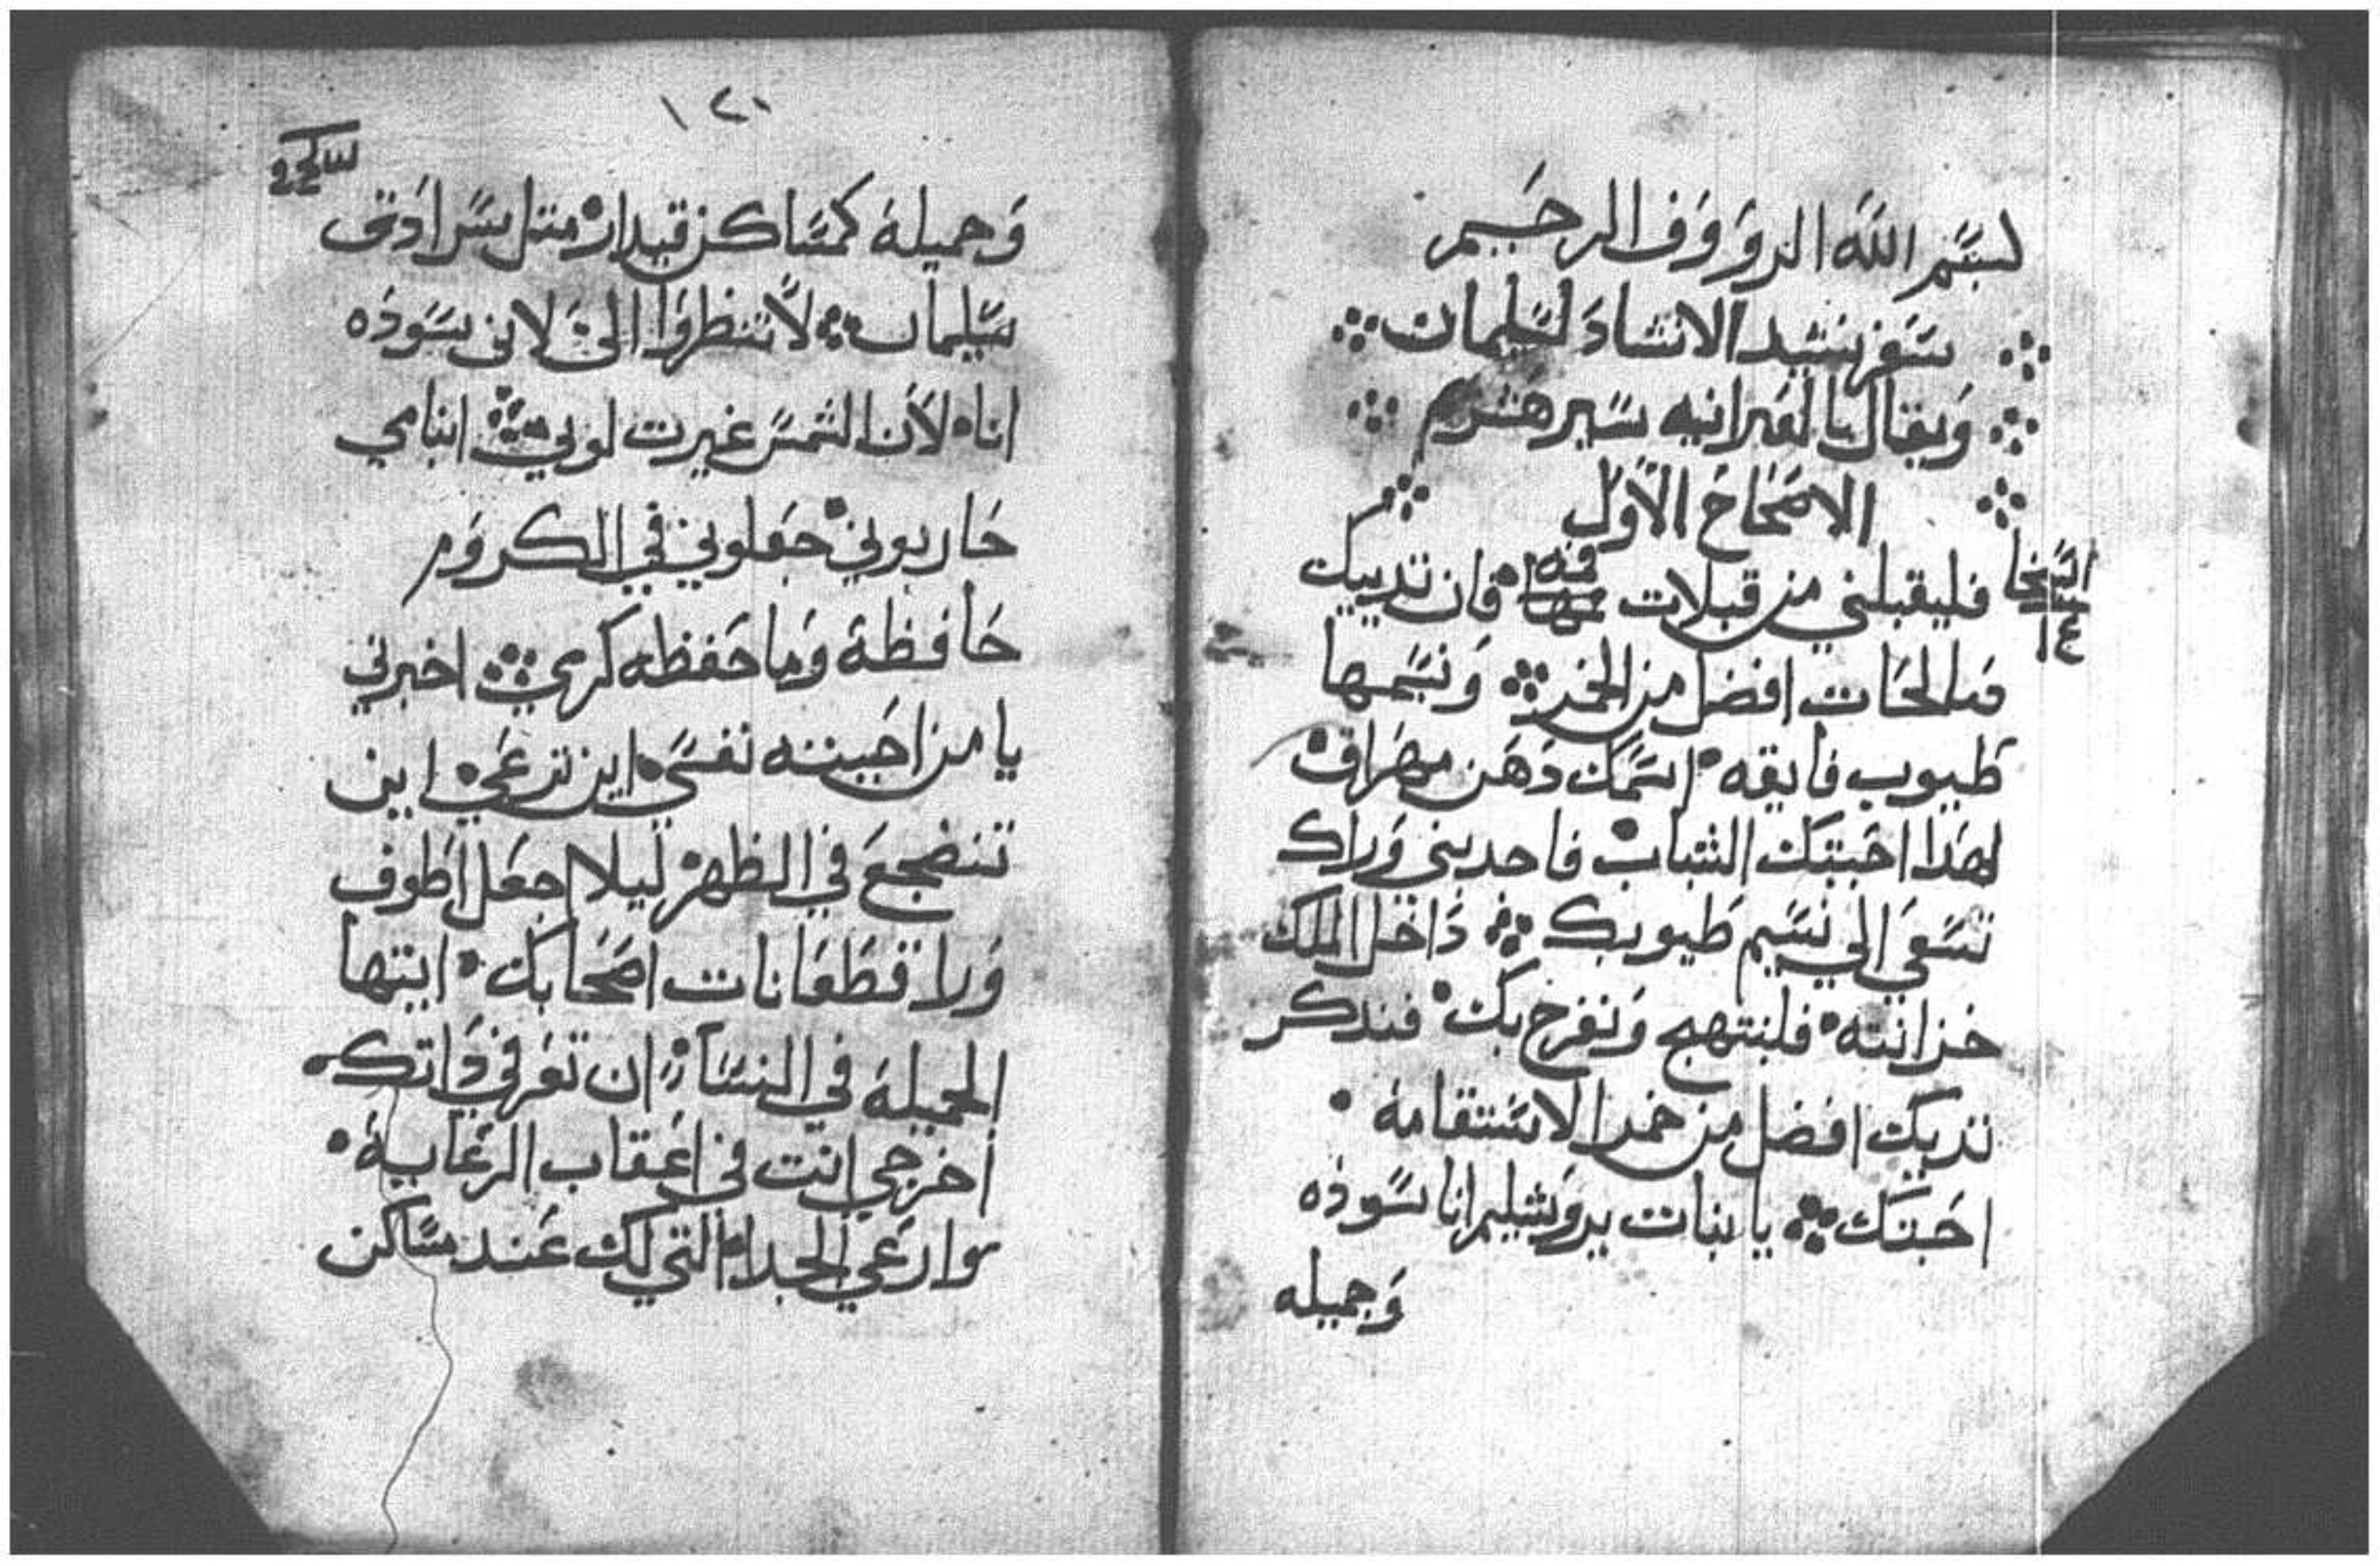 بسم الله الرووف الرحيم
سفر نشيد الانشاد لسليمان
ويقال بالعبرانيه سير هسرم
الاصحاح الاول
فليقبلني من قبلات فمه فان تدييك
صالحات افضل من الخمر ونسمها
طيوب فايقه اسمك دهن مهراق
لهدا احبتك الشباب فاحديني وراك
نسعى الي نسيم طيوبك داخل الملك
خزانته فلنبتهج ونفرح بك فندكر
تدييك افضل من خمر الاستقامة
احبتك يا بنات يروشليم انا سوده
وجميله
١٢٠
وجميلة كمساكن قيدار متل سرادق
سليمان لا تنظروا الى لاني سوده
انا لان الشمس غيرت لوني ابنا مي
حاربوني جعلوني في الكروم
حافظة وما حفظه كرمي اخبرني
يا من احببته نفسي اين ترعي اين
تنضجع في الظهر ليلا اجعل اطوف
ورا قطعانات اصحابك ايتها
الجميلة في النسا ان تعرفي داتك
اخرجي انت في اعقاب الرعاية
وارعي الجدا التي لك عند مساكن